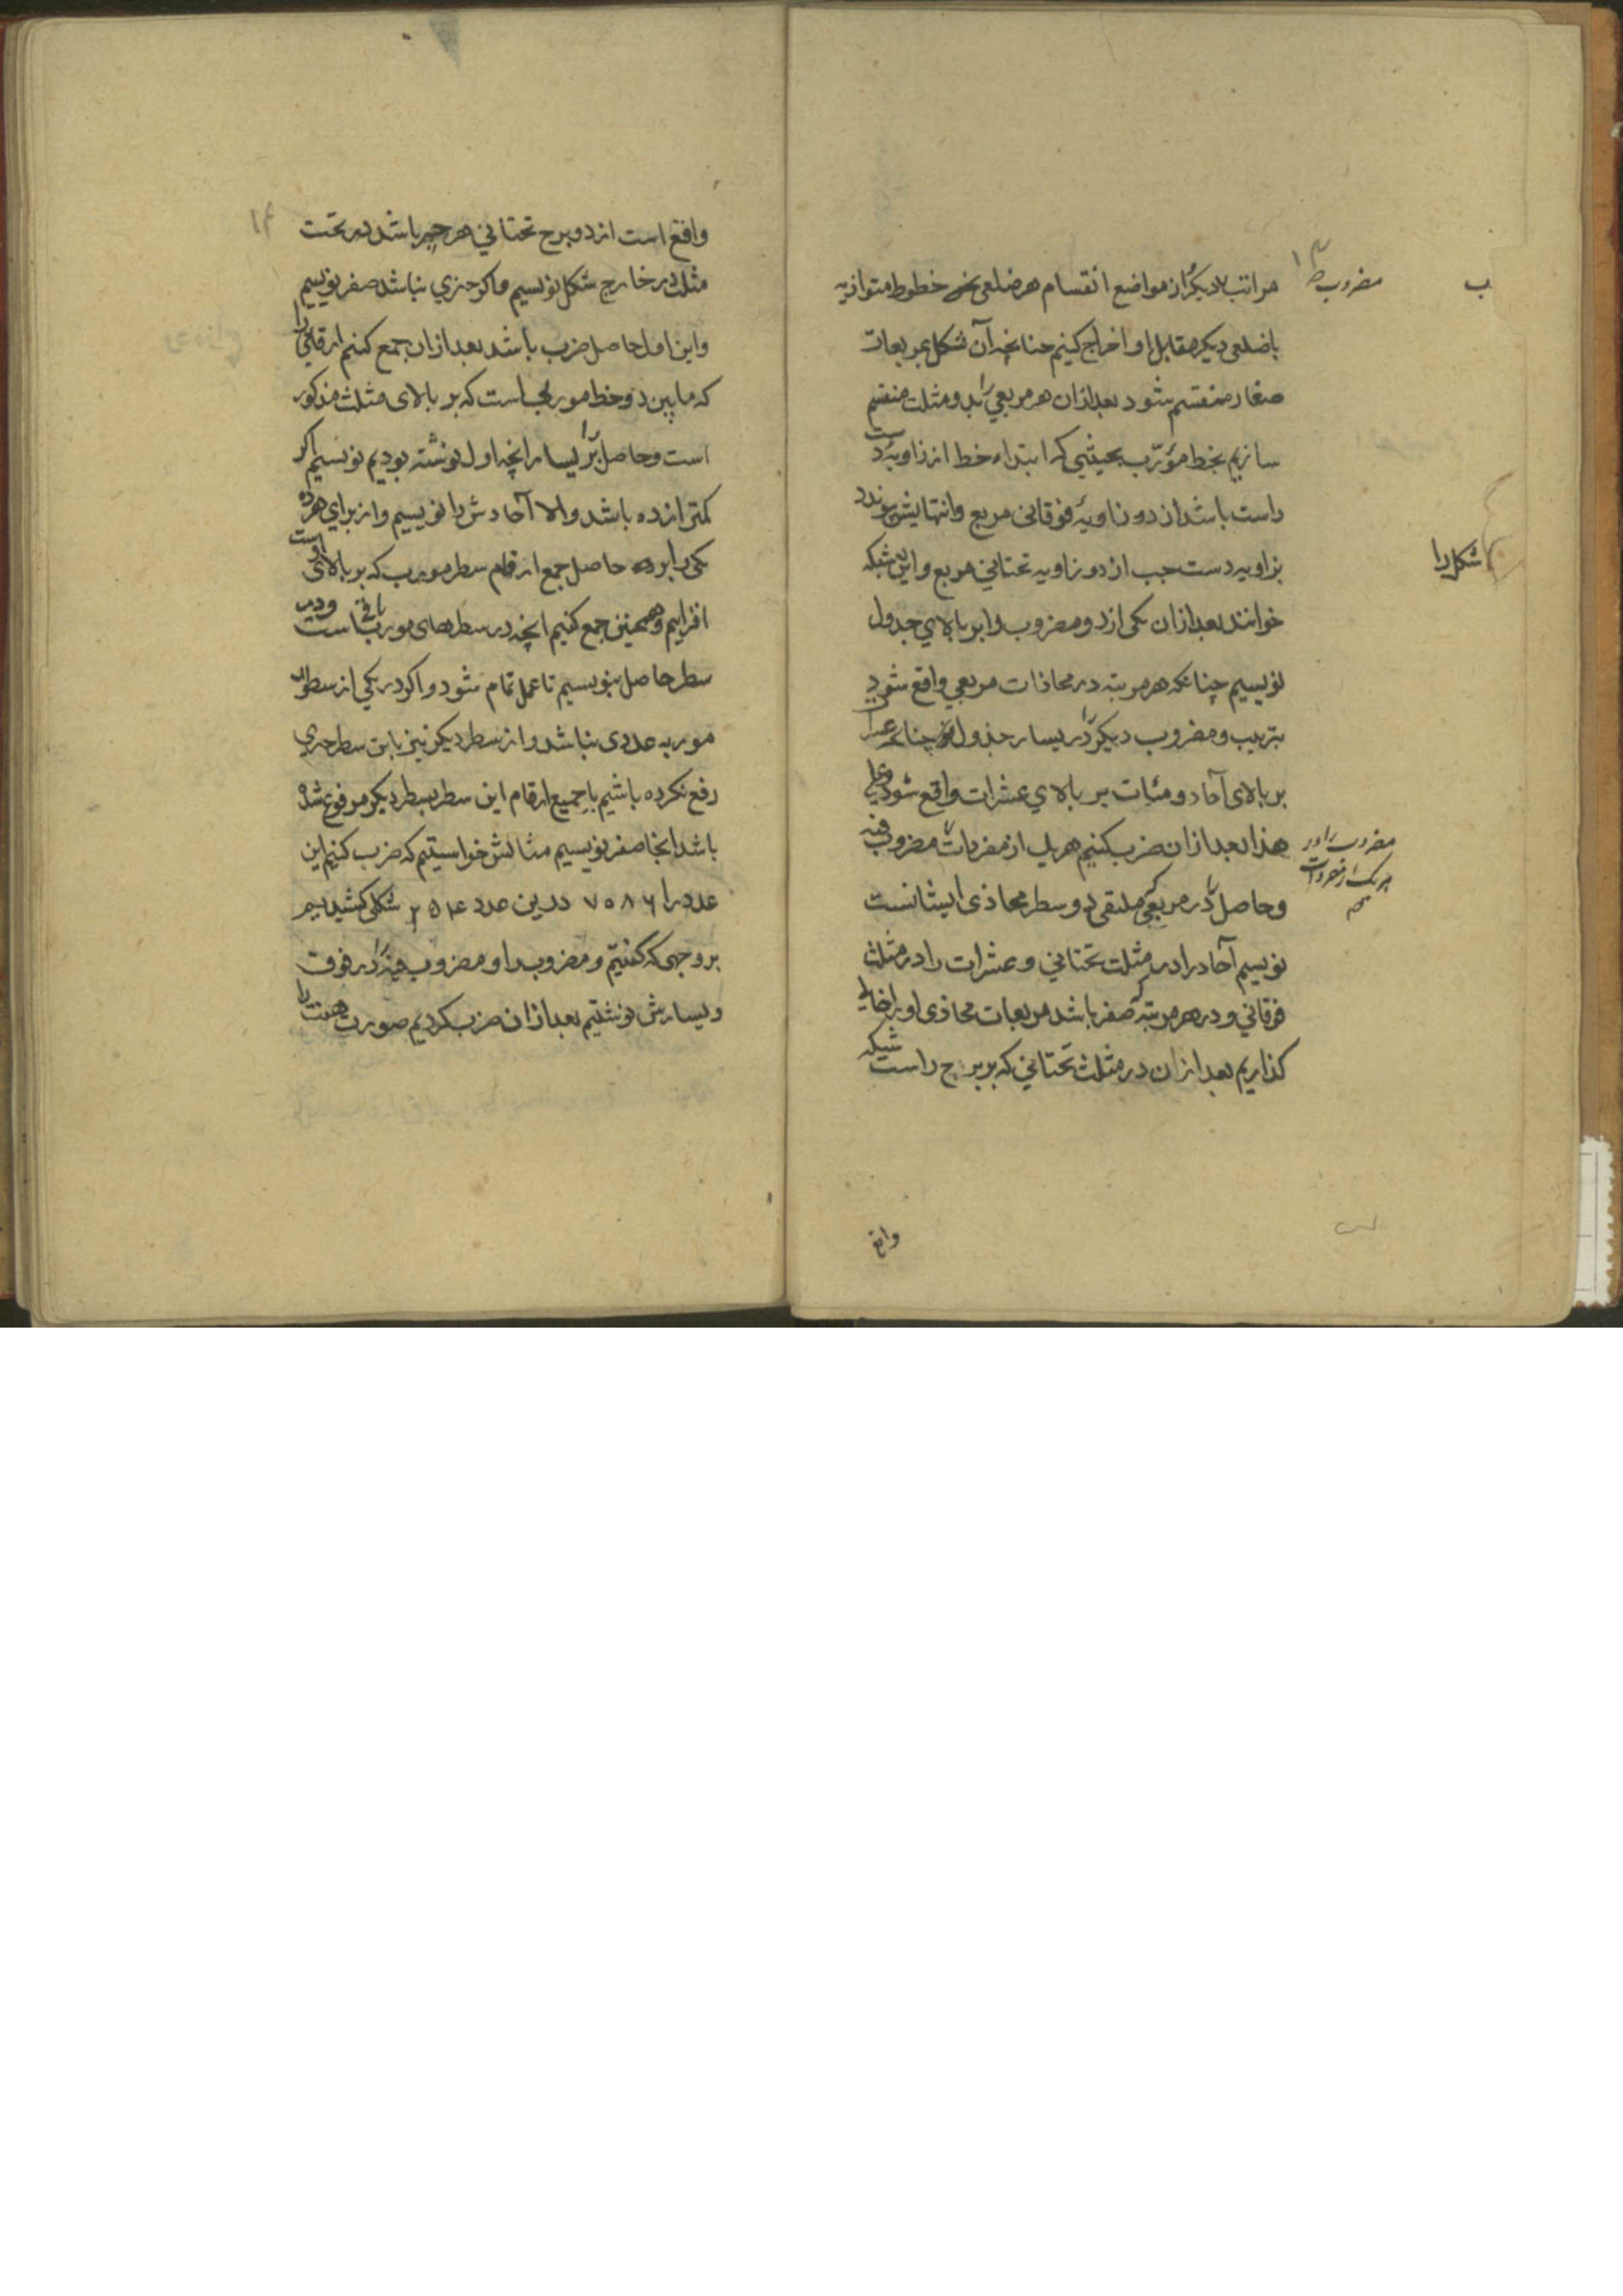 مراتب دیکر از مواضع انقسام هر ضلعی خطوط متوازیه
باضلعی دیکر مقابل او اخراج کنیم چنانچه آن شکل بمربعات
صغار منقسم شود بعد ازان هر مربعی را بدو مثلث منقسم
سازیم بخط مؤرّب بحیثیی که ابتداء خط از زاویهٔ دست
راست باشد از دو زاویهٔ فوقانی مربع وانتهایش
بزاویه دست چپ از دو زاویه تحتانی مربع واین شکل را شبکه
خوانند بعد ازان یکی از دو مضروب را بر بالای جدول
نویسیم چنانکه هر مرتبه در محاذات مربعی واقع شود
بترتیب و مضروب دیکر را در یسار جدول چنانکه عشرات
بر بالای آحاد و مئات بر بالای عشرات واقع شود وعلی
هذا بعد ازان ضرب کنیم هر یک از مفردات مضروب را در هر یک از مفردات مضروب فیه
وحاصل را در مربعی که ملتقی دو سطر محاذی ایشانست
نویسیم آحاد را در مثلث تحتانی و عشرات را در مثلث
فوقانی و در هر مرتبه که صفر باشد مربعات محاذی او را خالی
کذاریم بعد ازان در مثلث تحتانی که بر برج راست شبکه
واقع
واقع است از دو برج تحتانی هر چیز باشد در تحت
مثلث در خارج شکل نویسیم و اکر چیزی نباشد صفر نویسیم
واین اول حاصل ضرب باشد بعد ازان جمع کنیم ارقامی را
که مابین دو خط مورب است که بر بالای مثلث مذکور
است وحاصل را بر یسار انچه اول نوشته بودیم نویسیم اکر
کمتر از ده باشد والا آحادش را نویسیم واز برای هر ده
یکی را بر حاصل جمع ارقام سطر مورب که بر بالای او است
افزاییم وهمچنین جمع کنیم انچه در سطرهای مورب باقی است ودر
سطر حاصل بنویسیم تا عمل تمام شود واکر در یکی از سطور
موربه عددی نباشد واز سطر دیکر نیز باین سطر چیزی
رفع نکرده باشیم یا جمیع ارقام این سطر بسطر دیکر مرفوع شده
باشد انجا صفر نویسیم مثالش خواستیم که ضرب کنیم این
عدد را ۷۵۸۶ درین عدد ۲۵۴ شکلی کشیدیم
بر وجهی که کفتیم و مضروب را و مضروب فیه را در فوق
ویسارش نوشتیم بعد ازان ضرب کردیم صورت هفت را